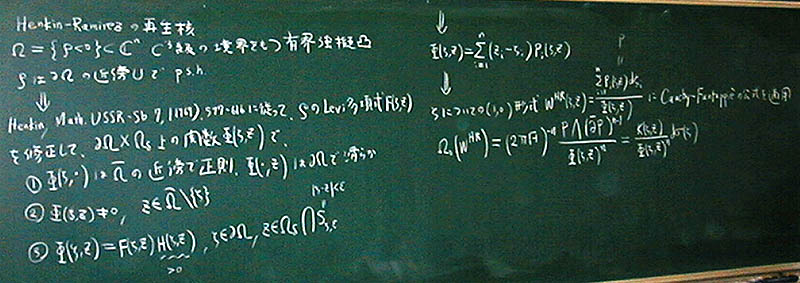 Henkin-Ramirez の再生核
Ω = {ρ<0} ⊂ ℂⁿ C³級の境界をもつ有界強擬凸
ρ は ∂Ω の近傍 U で p.s.h.
⇓
Henkin, Math. USSR-Sb 7, (1969), 597-616 に従って, ρの Levi多項式 F(ζ,z)
を修正して, ∂Ω × Ω_δ 上の関数 Φ(ζ,z) で,
① Φ(ζ,·) は Ω̄ の近傍で正則, Φ(·,z) は ∂Ω で滑らか
② Φ(ζ,z) ≠ 0, z∈Ω̄\{ζ}
|ζ-z|<ε
③ Φ(ζ,z) = F(ζ,z) H(ζ,z), ζ∈∂Ω, z∈Ω_δ ∩ S_{ζ,ε}
>0
⇓
Φ(ζ,z) = Σ_{i=1}^{n} (z_i-ζ_i) P_i(ζ,z)
⇓
P
ζについての(1,0)形式 W^{HR}(ζ,z) = Σ_{i=1}^{n} P_i(ζ,z)dζ_i / Φ(ζ,z) に Cauchy-Fantappiè の公式を適用
Ω_0(W^{HR}) = (2π√-1)^{-n} P∧(∂̄P)^{n-1} / Φ(ζ,z)^n = K(ζ,z) / Φ(ζ,z)^n dσ(ζ)